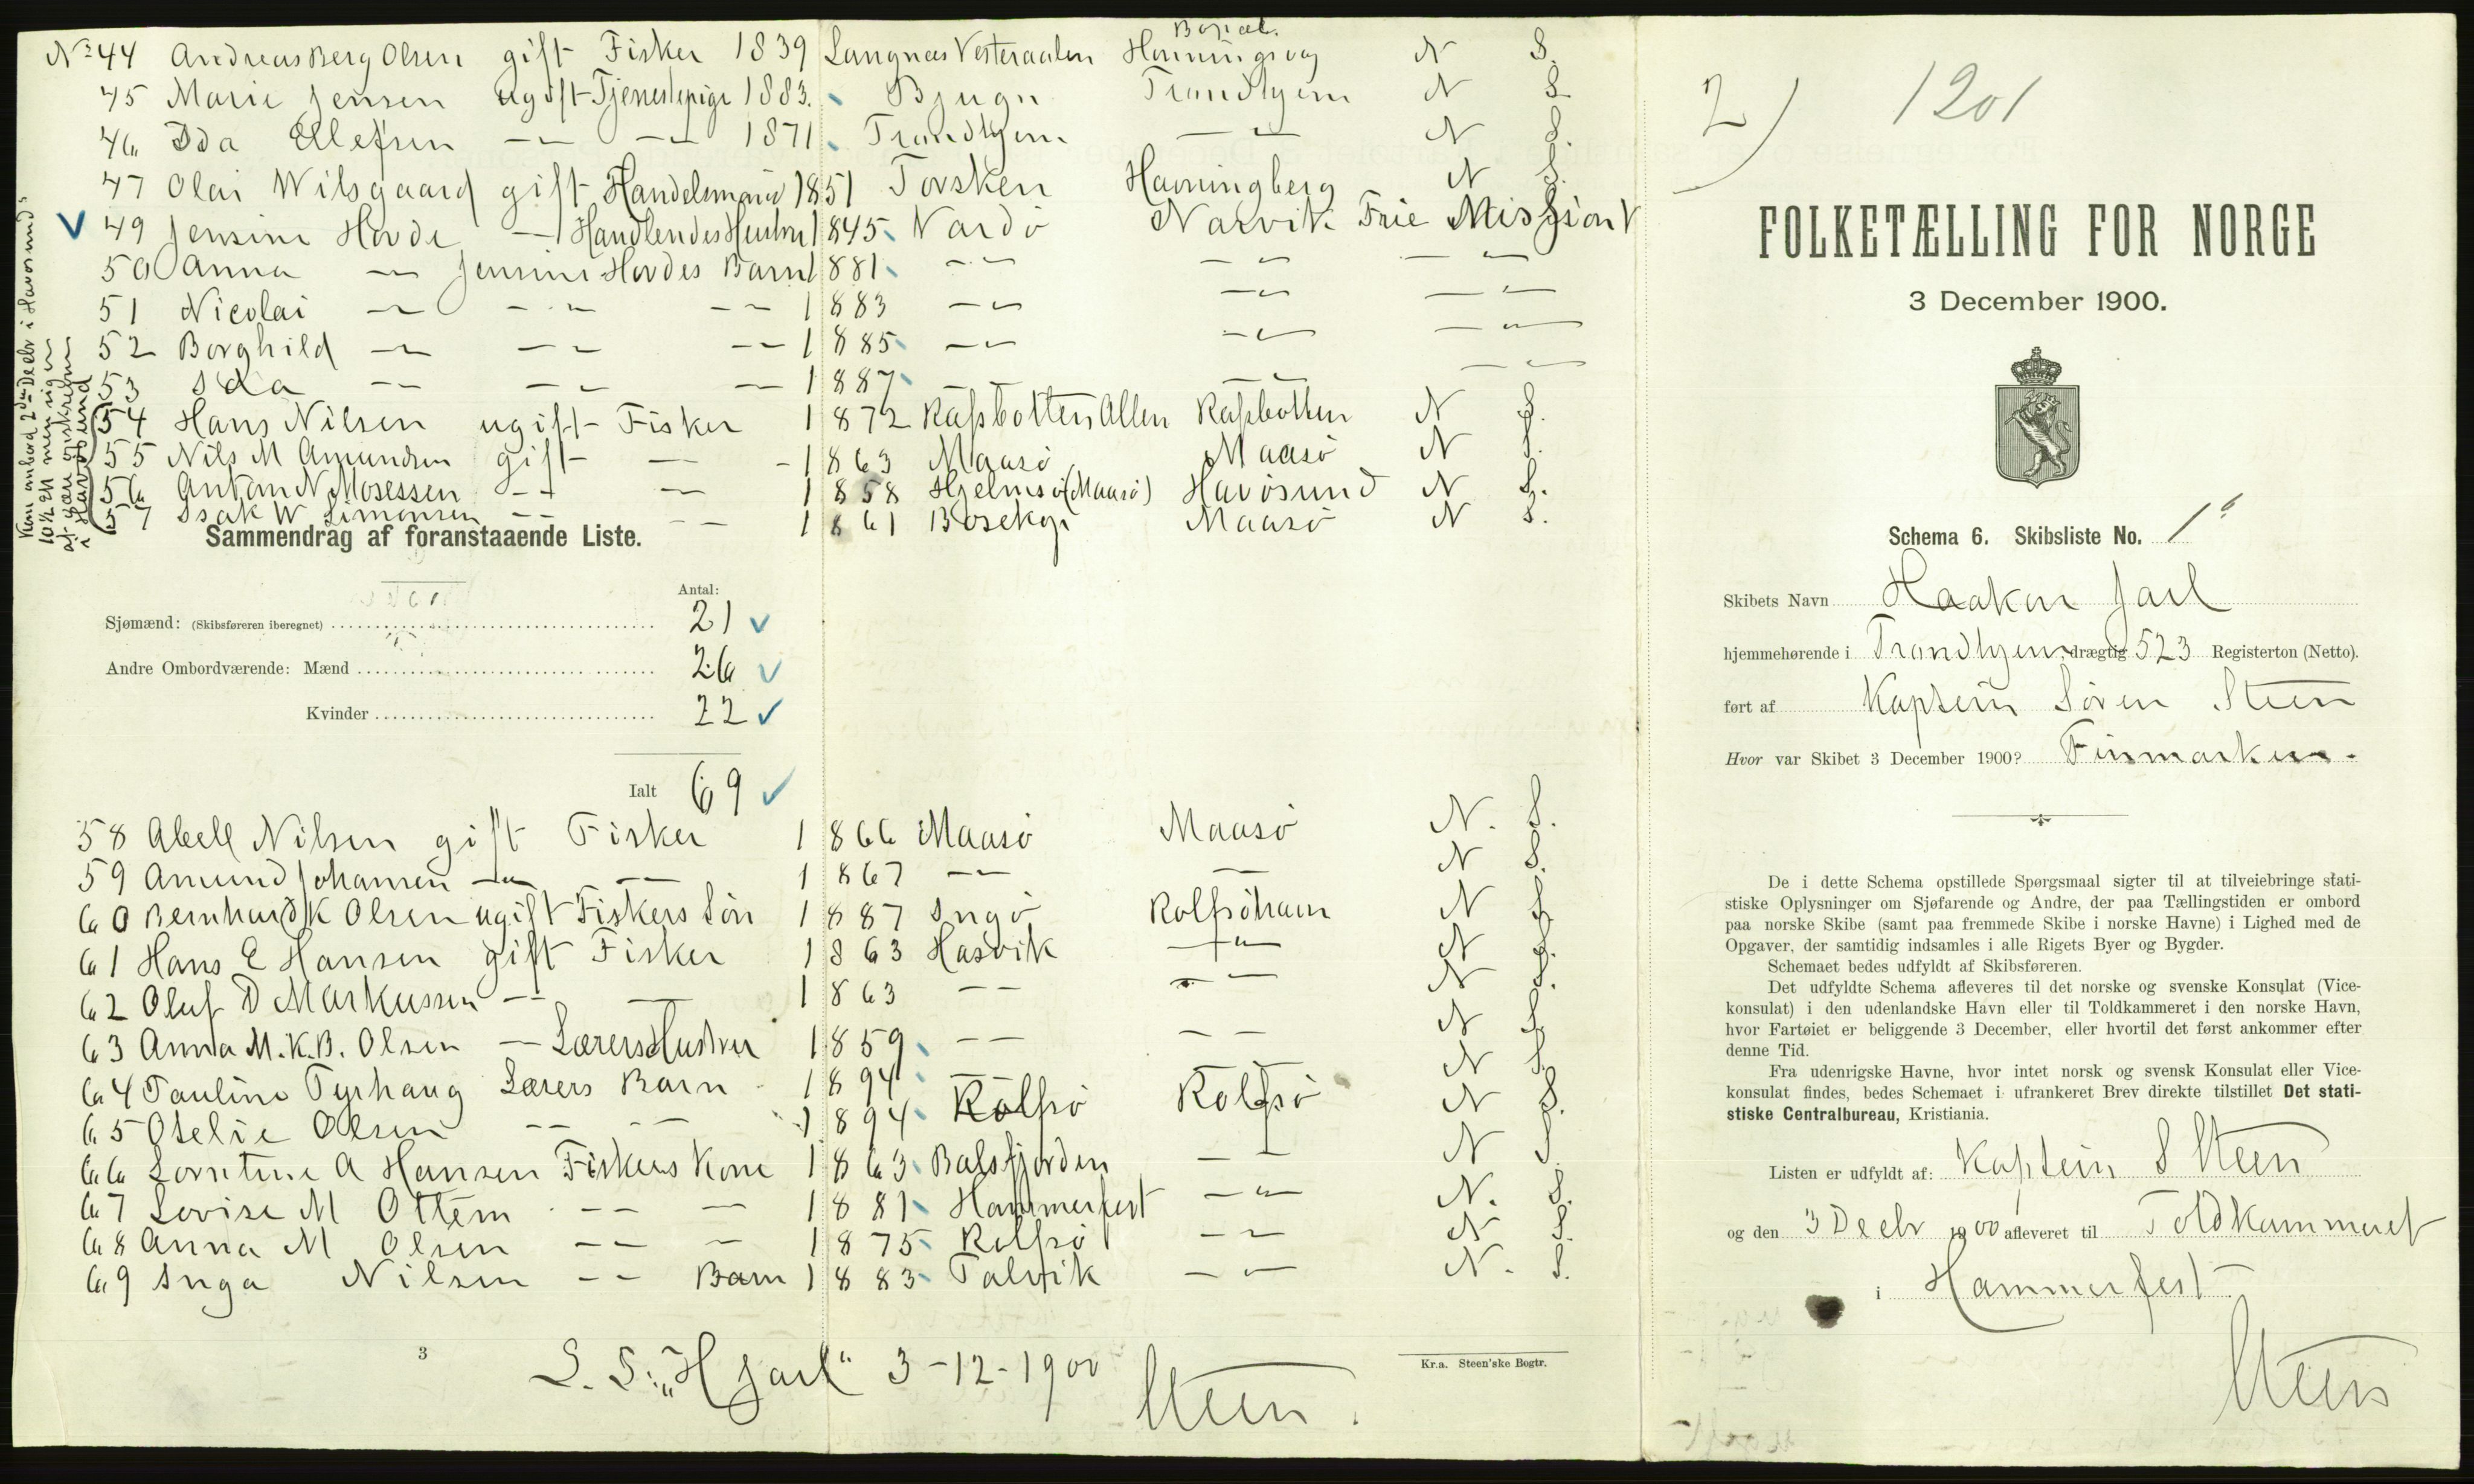 Bopæl.
No 44 Andreas Berg Olsen gift Fisker 1839 Langnæs Vesteraalen Honningsvag N S.
45 Marie Jensen ugift Tjenestepige 1883. Bjugn Trondhjem N S
46 Ida Ellefsen -"- -"- 1871 Trondhjem -"- N S.
47 Olai Wilsgaard gift Handelsmand 1851 Torsken Havningberg N S.
49 Jensine Hovde - Handlendes Hustru 1845 Vardö Narvik Frie Missjon
50 Anna -"- Jensine Hovdes Barn 1881 -"- -"- -"-
51 Nicolai -"- -"- -"- 1883 -"- -"- -"-
52 Borghild -"- -"- -"- 1885 -"- -"- -"-
53 Ida -"- -"- -"- 1887 -"- -"- -"-
54 Hans Nilsen ugift Fisker 1872 Kafsbotten Alten Kafsbotten N S.
55 Nils M Amundsen gift - 1863 Maasö Maasö N S.
56 Anton N Mosessen -"- - 1858 Hjelmsö (Maasö) Havösund N S.
57 Isak W Simonsen -"- -"- 1861 Bosekop Maasö N S.
Kom ombord 2den Decbr i Havösund
10 1/2 em men sig
i Havösund
Sammendrag af foranstaaende Liste.
Antal:
Sjømænd: (Skibsføreren iberegnet) 21
Andre Ombordværende: Mænd 26
Kvinder 22
Ialt 69
58 Abell Nilsen gift Fisker 1866 Maasö Maasö N. S.
59 Amund Johansen -"- -"- 1867 -"- - N S.
60 Bernhard K Olsen ugift Fiskers Sön 1887 Ingö Rolfsöhavn N S
61 Hans E Hansen gift Fisker 1863 Hasvik -"- N S.
62 Oluf D Markussen -"- - 1863 -"- -"- N S.
63 Anna M.K.B. Olsen - Lærers Hustru 1859 -"- -"- N S
64 Pauline Tyrhaug Lærers Barn 1894 - N S.
65 Otelie Olsen -"- -"- 1894 Rolfsö Rolfsö N S.
66 Lorntine A Hansen Fiskers Kone 1863 Balsfjorden -"- N S
67 Lovise M Ottem -"- - 1881 Hammerfest -"- N. S.
68 Anna M Olsen -"- - 1875 Rolfsö -"- N S.
69 Inga Nilsen -"- Barn 1883 Talvik -"- N. S.
3
S. S. „H Jarl" 3-12-1900 Steen.
Kr.a. Steen'ske Bogtr.
2) 1201
FOLKETÆLLING FOR NORGE
3 December 1900.
Schema 6. Skibsliste No. 1
Skibets Navn Haakon Jarl
hjemmehørende i Trondhjem, drægtig 523 Registerton (Netto).
ført af Kaptein Sören Steen
Hvor var Skibet 3 December 1900? Finmarken.
De i dette Schema opstillede Spørgsmaal sigter til at tilveiebringe stati-
stiske Oplysninger om Sjøfarende og Andre, der paa Tællingstiden er ombord
paa norske Skibe (samt paa fremmede Skibe i norske Havne) i Lighed med de
Opgaver, der samtidig indsamles i alle Rigets Byer og Bygder.
Schemaet bedes udfyldt af Skibsføreren.
Det udfyldte Schema afleveres til det norske og svenske Konsulat (Vice-
konsulat) i den udenlandske Havn eller til Toldkammeret i den norske Havn,
hvor Fartøiet er beliggende 3 December, eller hvortil det først ankommer efter
denne Tid.
Fra udenrigske Havne, hvor intet norsk og svensk Konsulat eller Vice-
konsulat findes, bedes Schemaet i ufrankeret Brev direkte tilstillet Det stati-
stiske Centralbureau, Kristiania.
Listen er udfyldt af: Kaptein S Steen
og den 3 Decbr 1900 afleveret til Toldkammeret
i Hammerfest
Steen